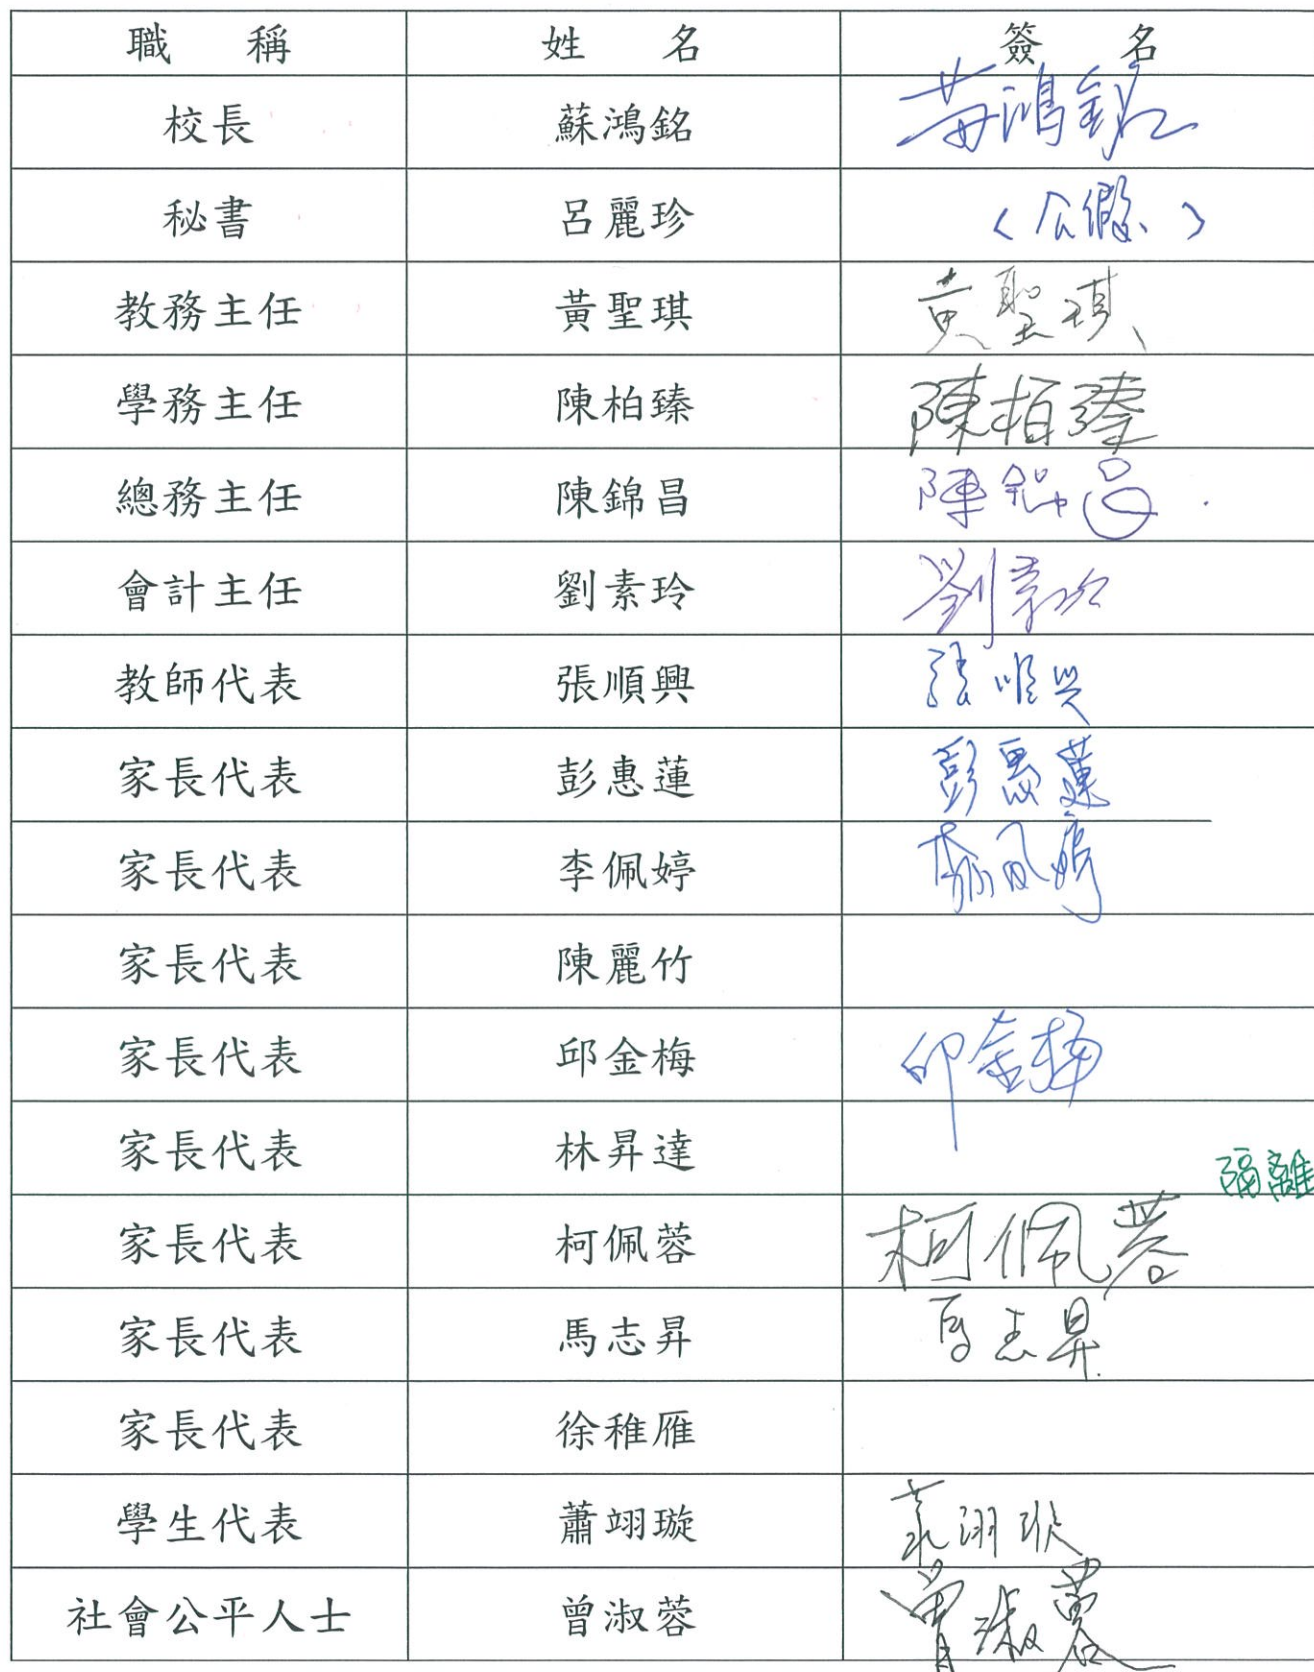 職稱 姓名 簽名
校長 蘇鴻銘 蘇鴻銘
秘書 呂麗珍 (公假)
教務主任 黃聖琪 黃聖琪
學務主任 陳柏臻 陳柏臻
總務主任 陳錦昌 陳錦昌
會計主任 劉素玲 劉素玲
教師代表 張順興 張順興
家長代表 彭惠蓮 彭惠蓮
家長代表 李佩婷 李佩婷
家長代表 陳麗竹
家長代表 邱金梅 邱金梅
家長代表 林昇達 隔離
家長代表 柯佩蓉 柯佩蓉
家長代表 馬志昇 馬志昇
家長代表 徐稚雁
學生代表 蕭翊璇 蕭翊璇
社會公平人士 曾淑蓉 曾淑蓉